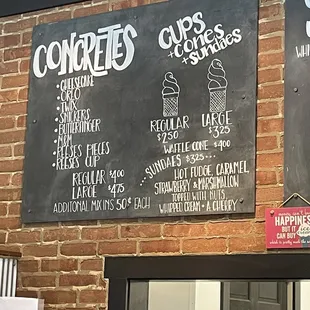 CONCRETES
• CHEESECAKE
• OREO
• TWIX
• SNICKERS
• BUTTERFINGER
• M&M
• REESES PIECES
• REESES CUP
REGULAR $4.00
LARGE $4.75
ADDITIONAL MIX INS 50¢ EACH
CUPS
+ CONES
+ SUNDAES
REGULAR $2.50
LARGE $3.25
WAFFLE CONE $4.00
...SUNDAES $3.25...
HOT FUDGE, CARAMEL,
STRAWBERRY & MARSHMALLOW
TOPPED WITH NUTS,
WHIPPED CREAM + A CHERRY
HAPPINESS
BUT IT
CAN BUY